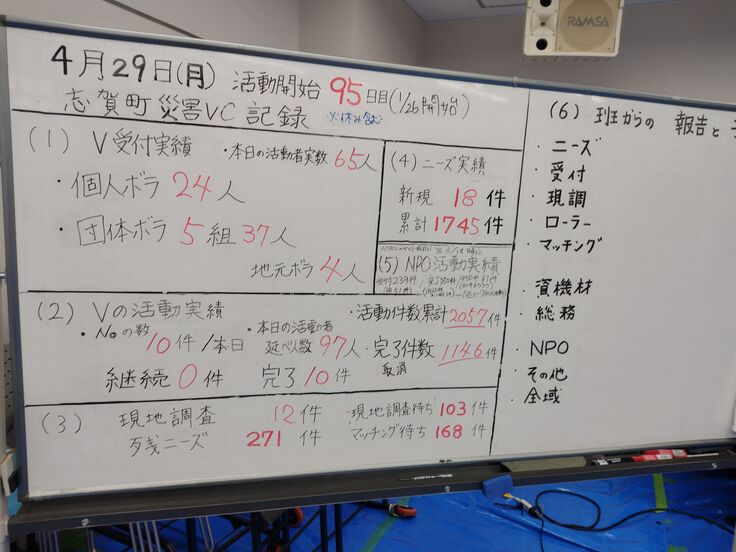 RAMSA
4月29日(月) 活動開始 95日目(1/26開始)
志賀町災害VC 記録 ※休み含む
(1) V受付実績 ・本日の活動者実数 65人
・個人ボラ 24人
・団体ボラ 5組 37人
地元ボラ 4人
(2) Vの活動実績 ・活動件数累計 2057件
・Noの数 10件/本日 ・本日の活動者延べ人数 97人 ・完了件数 1146件
取消
継続 0件 完了 10件
(3) 現地調査 12件 ・現地調査待ち 103件
残ニーズ 271件 マッチング待ち 168件
(4) ニーズ実績
新規 18件
累計 1745件
(5) NPO活動実績
(6) 班からの 報告と
・ニーズ
・受付
・現調
・ローラー
・マッチング
・資機材
・総務
・NPO
・その他
・全域